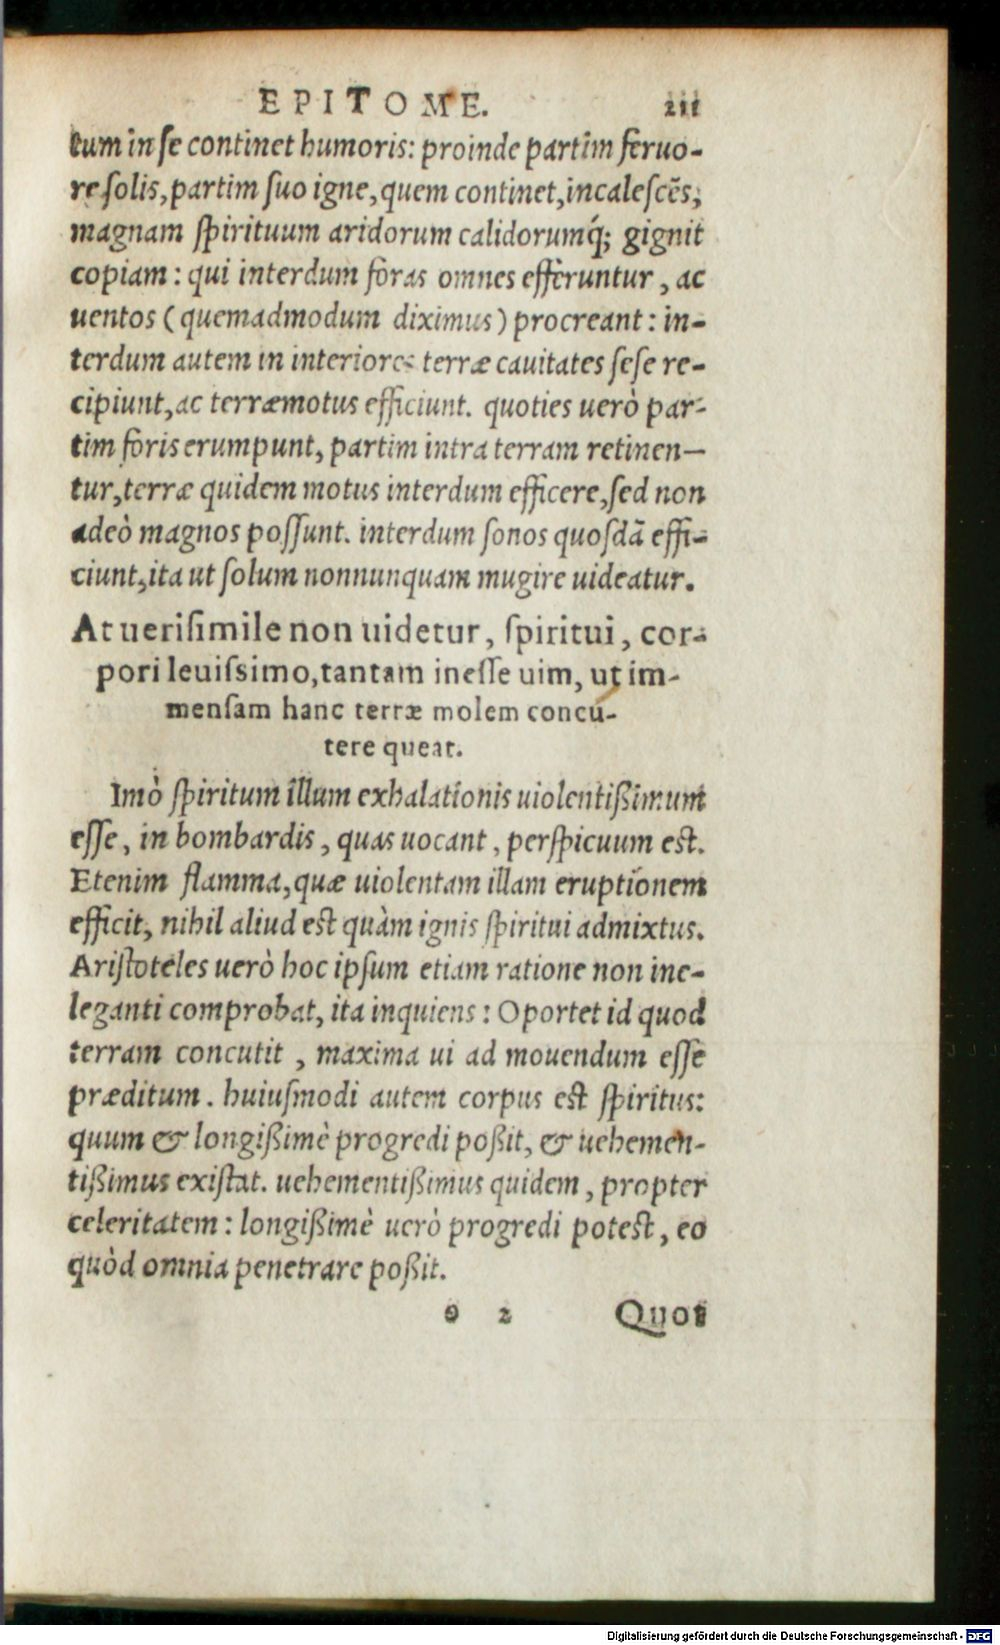 EPITOME. 211
tum in se continet humoris: proinde partim feruo-
re solis, partim suo igne, quem continet, incalescẽs,
magnam spirituum aridorum calidorumq́; gignit
copiam: qui interdum foras omnes efferuntur, ac
uentos (quemadmodum diximus) procreant: in-
terdum autem in interiores terræ cauitates sese re-
cipiunt, ac terræmotus efficiunt. quoties uerò par-
tim foris erumpunt, partim intra terram retinen-
tur, terræ quidem motus interdum efficere, sed non
adeò magnos possunt. interdum sonos quosdã effi-
ciunt, ita ut solum nonnunquam mugire uideatur.
At uerisimile non uidetur, spiritui, cor-
pori leuissimo, tantam inesse uim, ut im-
mensam hanc terræ molem concu-
tere queat.
Imò spiritum illum exhalationis uiolentißimum
esse, in bombardis, quas uocant, perspicuum est.
Etenim flamma, quæ uiolentam illam eruptionem
efficit, nihil aliud est quàm ignis spiritui admixtus.
Aristoteles uerò hoc ipsum etiam ratione non ine-
leganti comprobat, ita inquiens: Oportet id quod
terram concutit, maxima ui ad mouendum esse
præditum. huiusmodi autem corpus est spiritus:
quum & longißimè progredi poßit, & uehemen-
tißimus existat. uehementißimus quidem, propter
celeritatem: longißimè uerò progredi potest, eo
quòd omnia penetrare poßit.
o 2 Quot
Digitalisierung gefördert durch die Deutsche Forschungsgemeinschaft - DFG